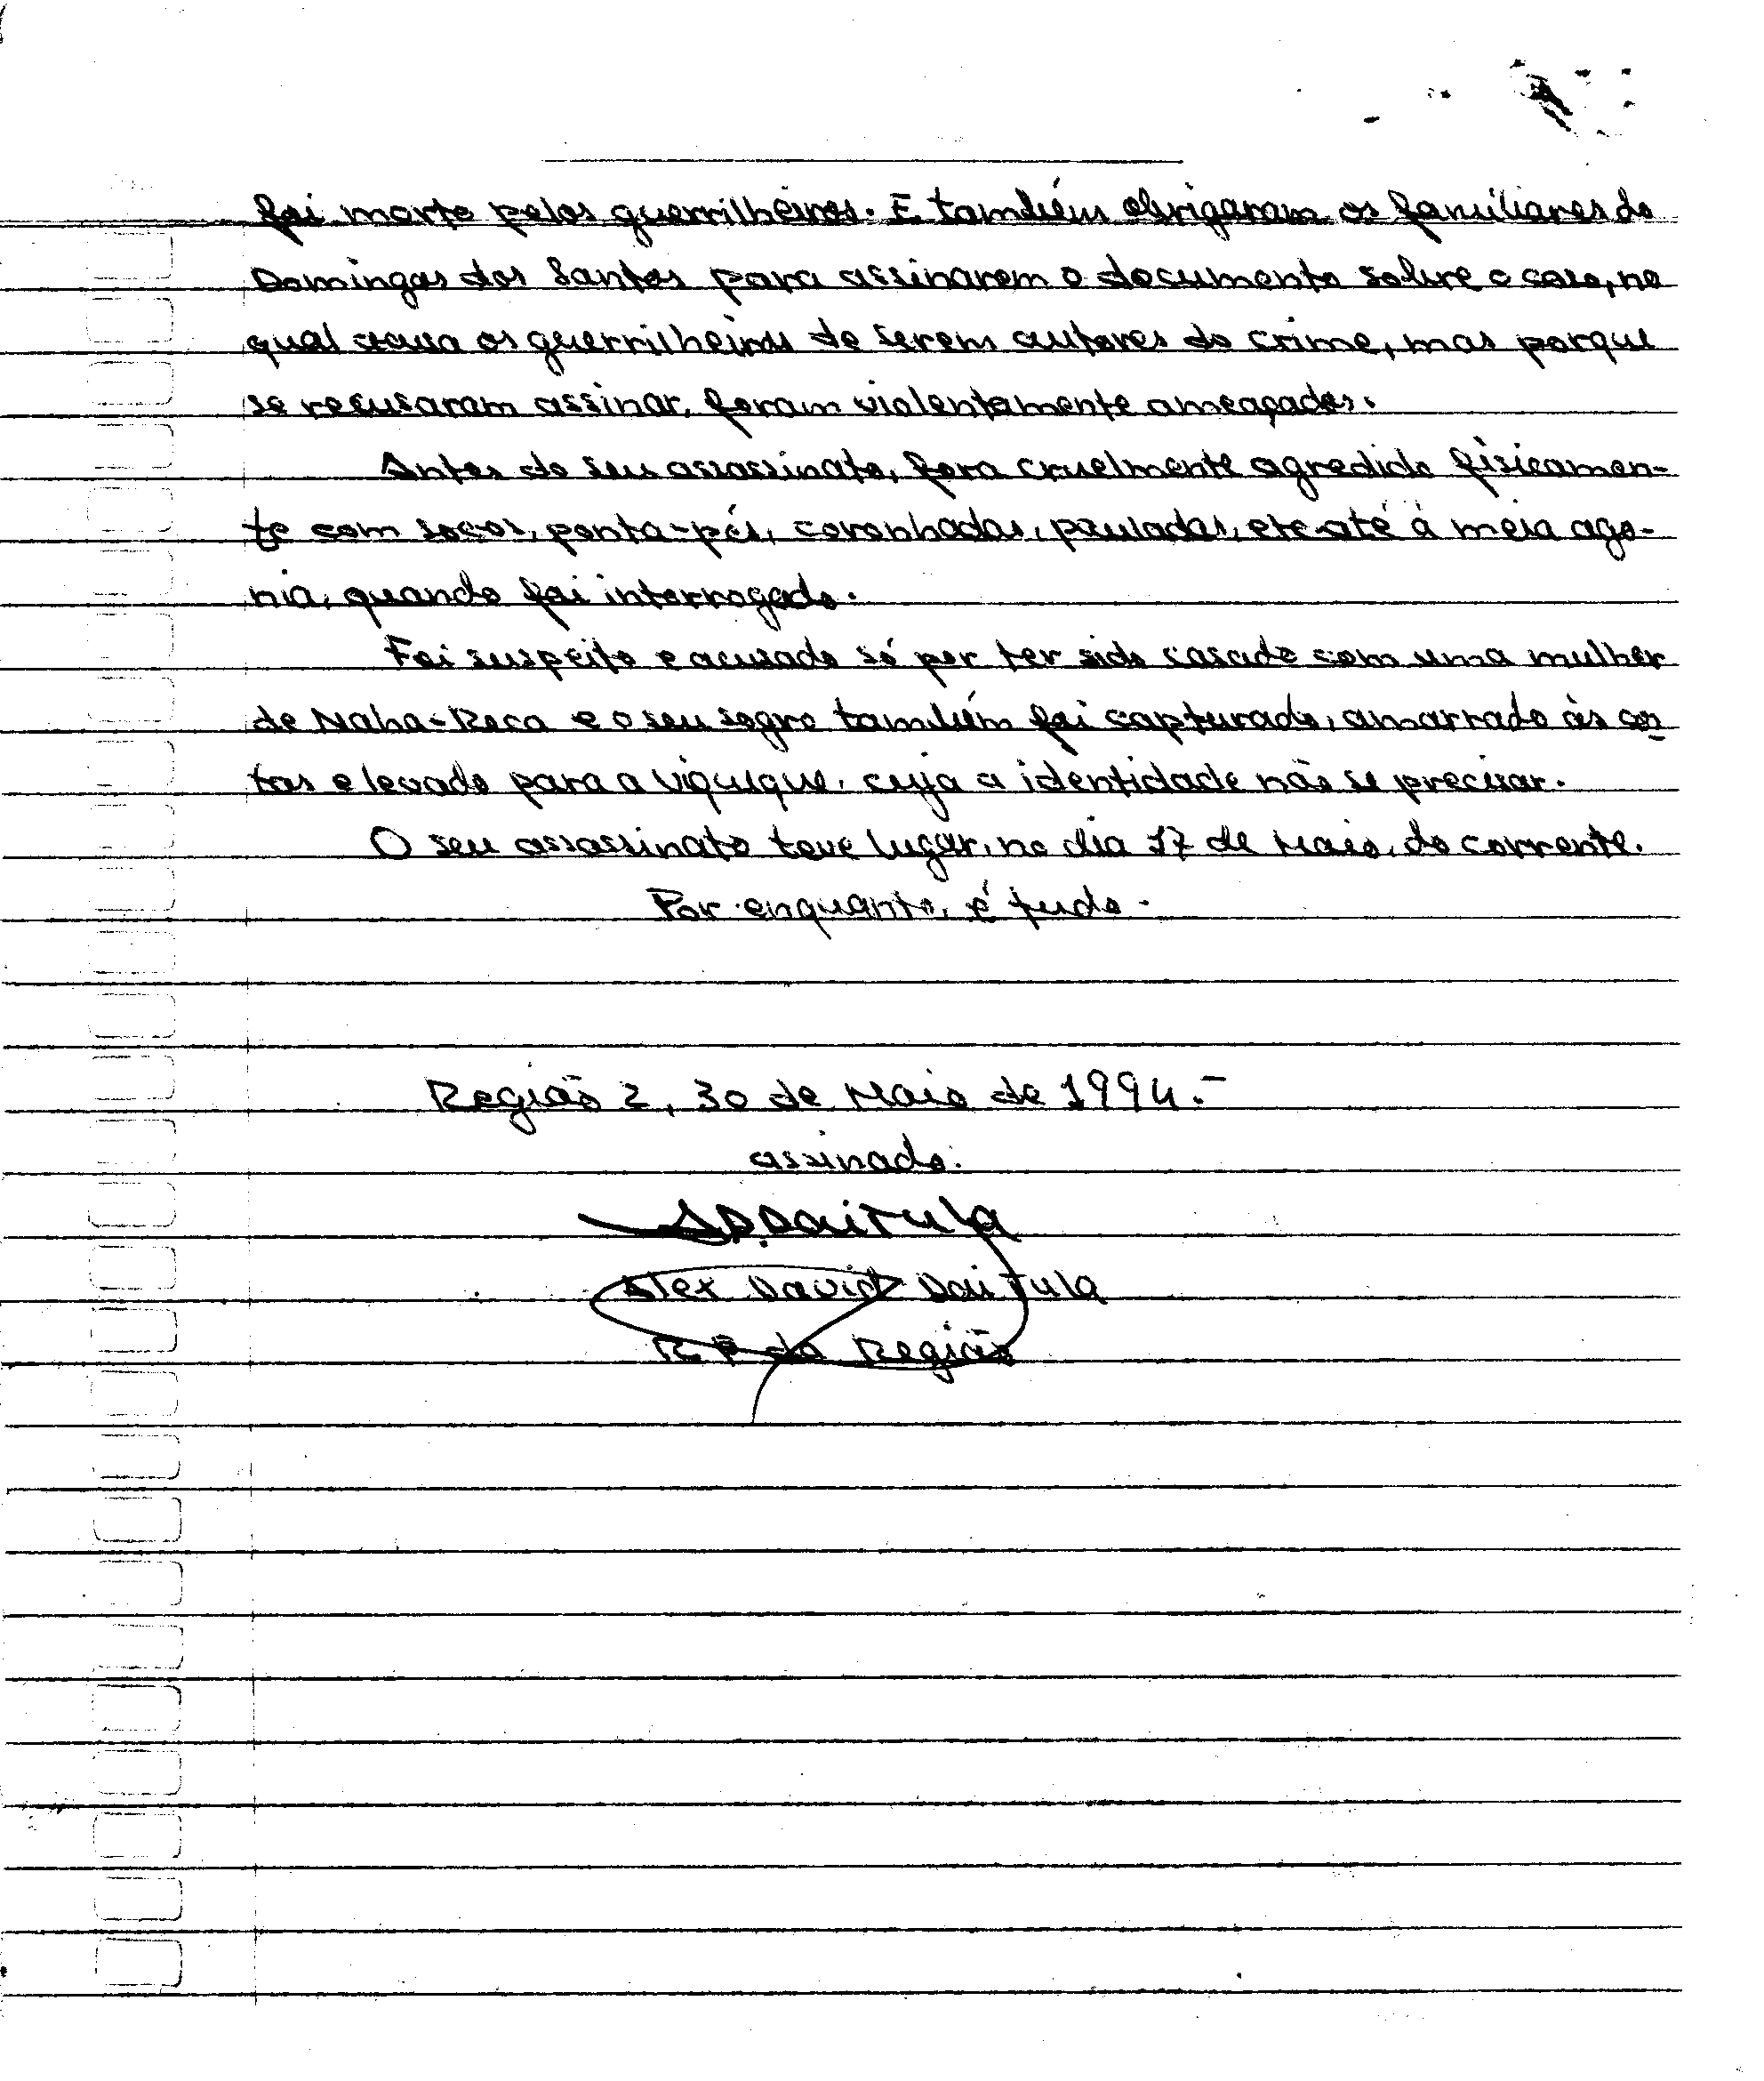 foi morto pelos guerrilheiros. E também obrigaram os familiares do
Domingos dos Santos para assinarem o documento sobre o caso, no
qual acusa os guerrilheiros de serem autores do crime, mas porque
se recusaram assinar, foram violentamente ameaçados.
Antes do seu assassinato, fora cruelmente agredido fisicamen-
te com socos, ponta-pés, coronhadas, pauladas, etc até à meia ago-
nia, quando foi interrogado.
Foi suspeito e acusado só por ter sido casado com uma mulher
de Naha-Reca e o seu sogro também foi capturado, amarrado às cos
tas e levado para a Viqueque, cuja a identidade não se precisar.
O seu assassinato teve lugar, no dia 17 de Maio, do corrente.
Por enquanto, é tudo.
Região 2, 30 de Maio de 1994.-
assinado:
A.D.Daitula
Alex David Daitula
R.P da Região